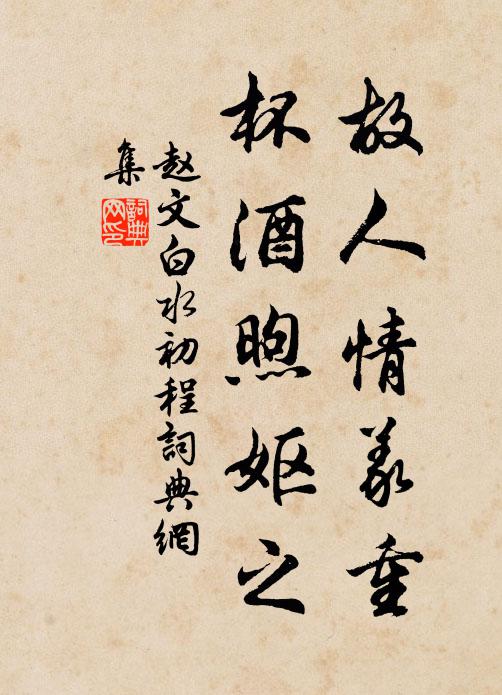 故人情义重
杯酒煦妪之
赵文白水初程詞典網
集
詞典网印